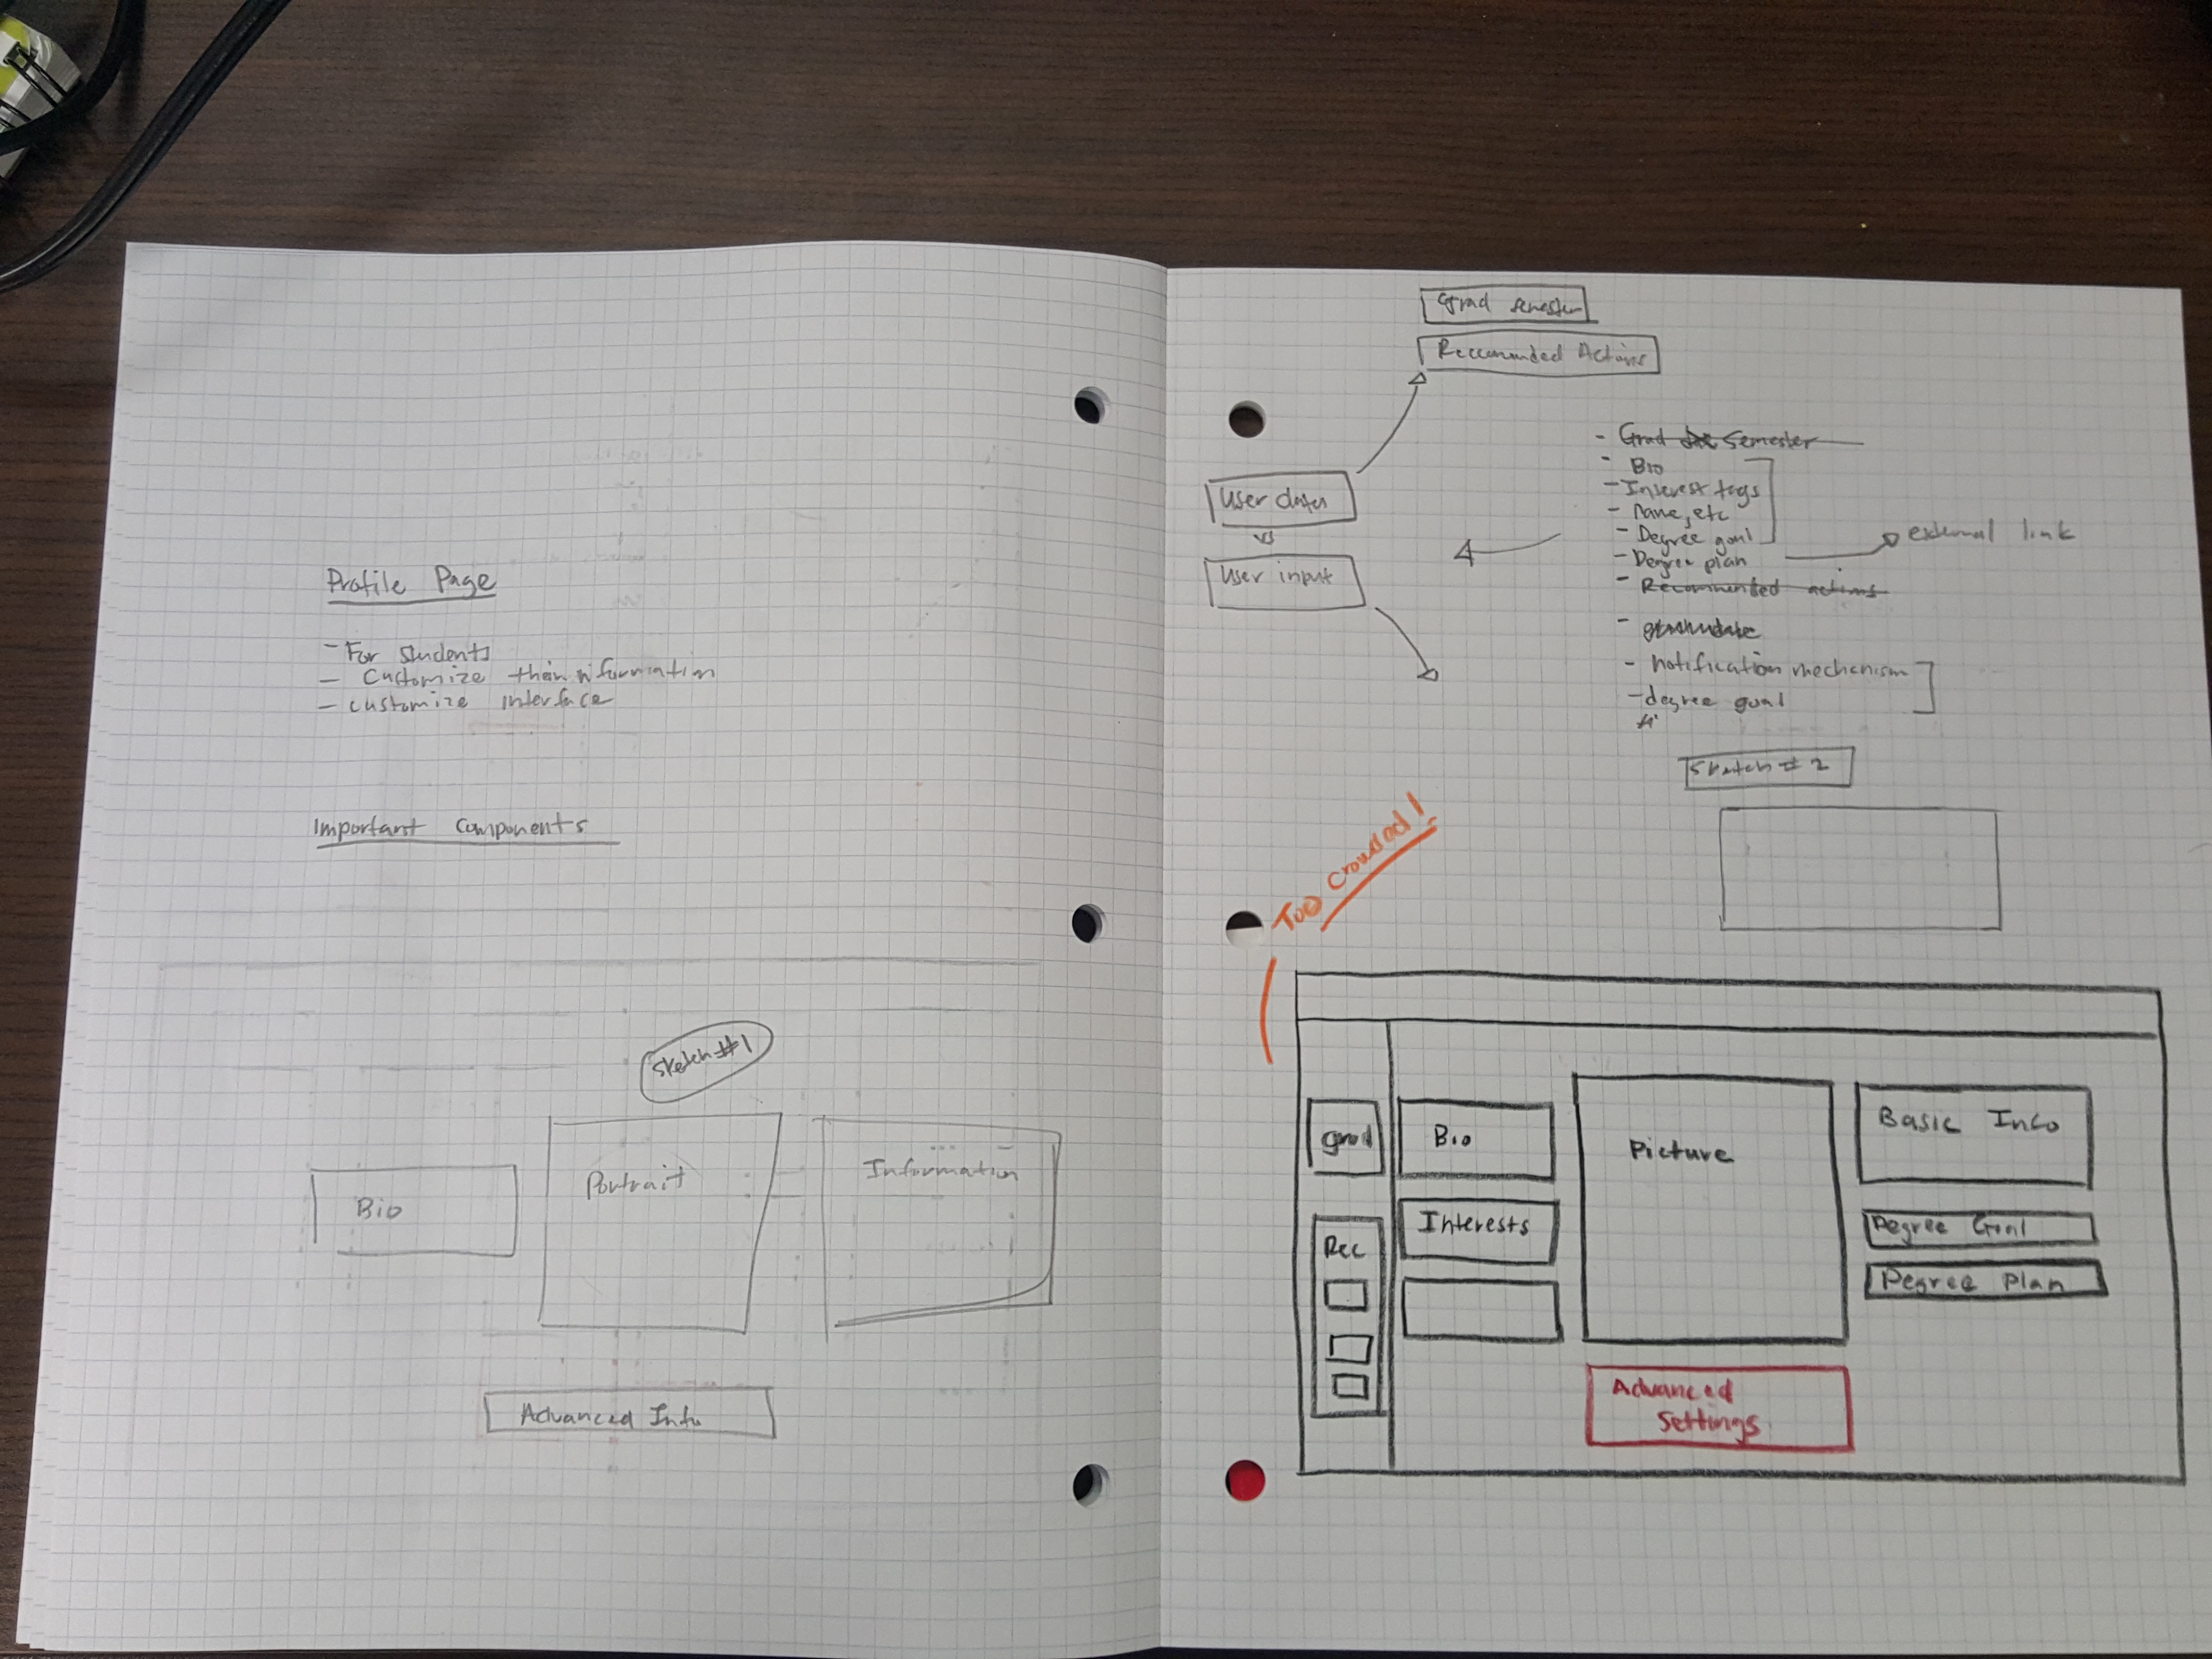 Profile Page
- For students
- Customize their information
- customize interface
Important Components
Sketch #1
Bio
Portrait
Information
Advanced Info
Grad semester
Recommended Actions
User data
vs
User input
- Grad semester
- Bio
- Interest tags
- name, etc
- Degree goal
- Degree plan
external link
- Recommended actions
- notification mechanism
- degree goal
Sketch # 2
Too crowded!
grad
Bio
Picture
Basic Info
Interests
Rec
Degree Goal
Degree Plan
Advanced
Settings